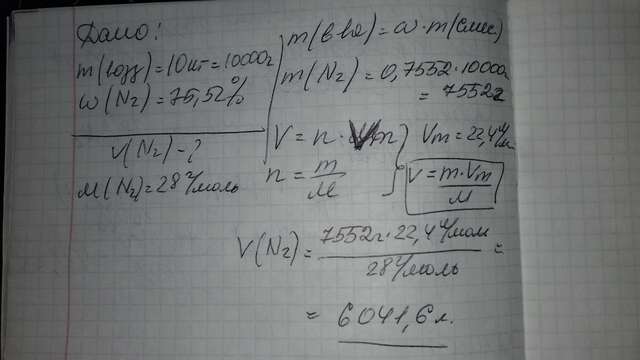 Дано:
m(возд)=10кг=10000г
ω(N2)=75,52%
V(N2)-?
M(N2)=28 г/моль
m(в-ва)=ω·m(смеси)
m(N2)=0,7552·10000г
=7552г
V=n·Vm
n=m/M
Vm=22,4 л/м
V=m·Vm/M
V(N2)=7552г·22,4 л/моль/28 г/моль=
=6041,6 л.